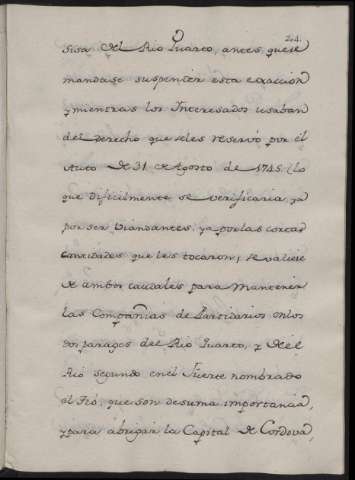 24.
sisa del Rio Quarto, antes que se
mandase suspender esta exaccion
y mientras los Interesados usaban
del derecho que se les reservó por el
Auto de 31 de Agosto de 1745 (lo
que dificilmente se verificaria, ya
por ser Viandantes, ya por las cortas
cantidades que les tocaron) se valiese
de ambos caudales para Mantener
las Compañias de Partidarios en los
dos parages del Rio Quarto, y del
Rió segundo en el Fuerte nombrado
el Tió, que son de suma importancia,
y para abrigar la Capital de Cordova,